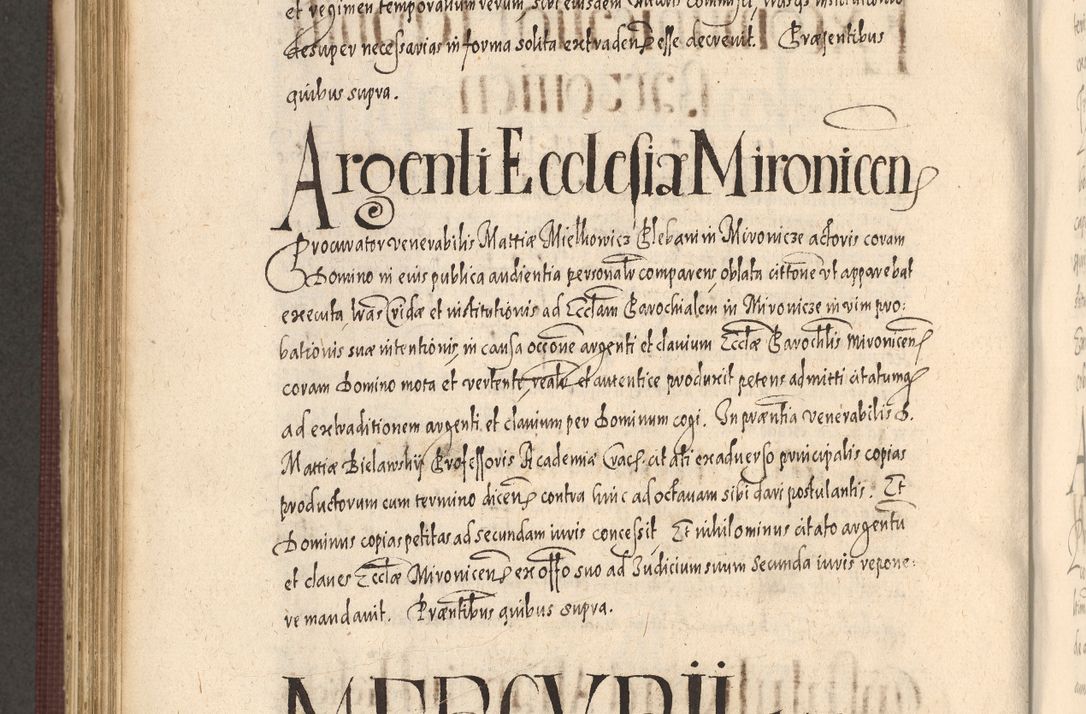 et regimen temporalium verum, sibi eiusdem
desuper necessarias in forma solita extraden esse decrevit. Præsentibus
quibus supra.
Argenti Ecclesiæ Mironicen
Procurator venerabilis Mattiæ Mielkowicz Plebani in Mironicze actoris coram
Domino in eius publica audientia personalr comparens, oblata cittone ut apparebat
executa, lras Cridæ et institutionis ad Ecclam Parochialem in Mironicze in vim pro:
bationis suæ intentionis, in causa occone argenti et clavium Ecclæ Parochlis Mironicen
coram Domino mota et vertente, realr et autentice produxit petens admitti citatumq
ad extraditionem argenti et clavium per Dominum cogi. In præntia venerabilis D.
Mattiæ Bielawskij Professoris Academiæ Crac citati ex adverso principalis copias
productorum cum termino dicen contra hinc ad octavam sibi dari postulantis. Et
Dominus copias petitas ad secundam iuris concessit. Et nihilominus citato argentu
et claves Ecclæ Mironicen ex offo suo ad Iudicium suum Secunda iuris repone:
re mandavit. Præntibus quibus supra.
MERCVRII